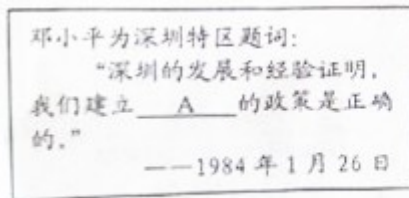 邓小平为深圳特区题词:
“深圳的发展和经验证明,
我们建立 A 的政策是正确
的。”
——1984年1月26日